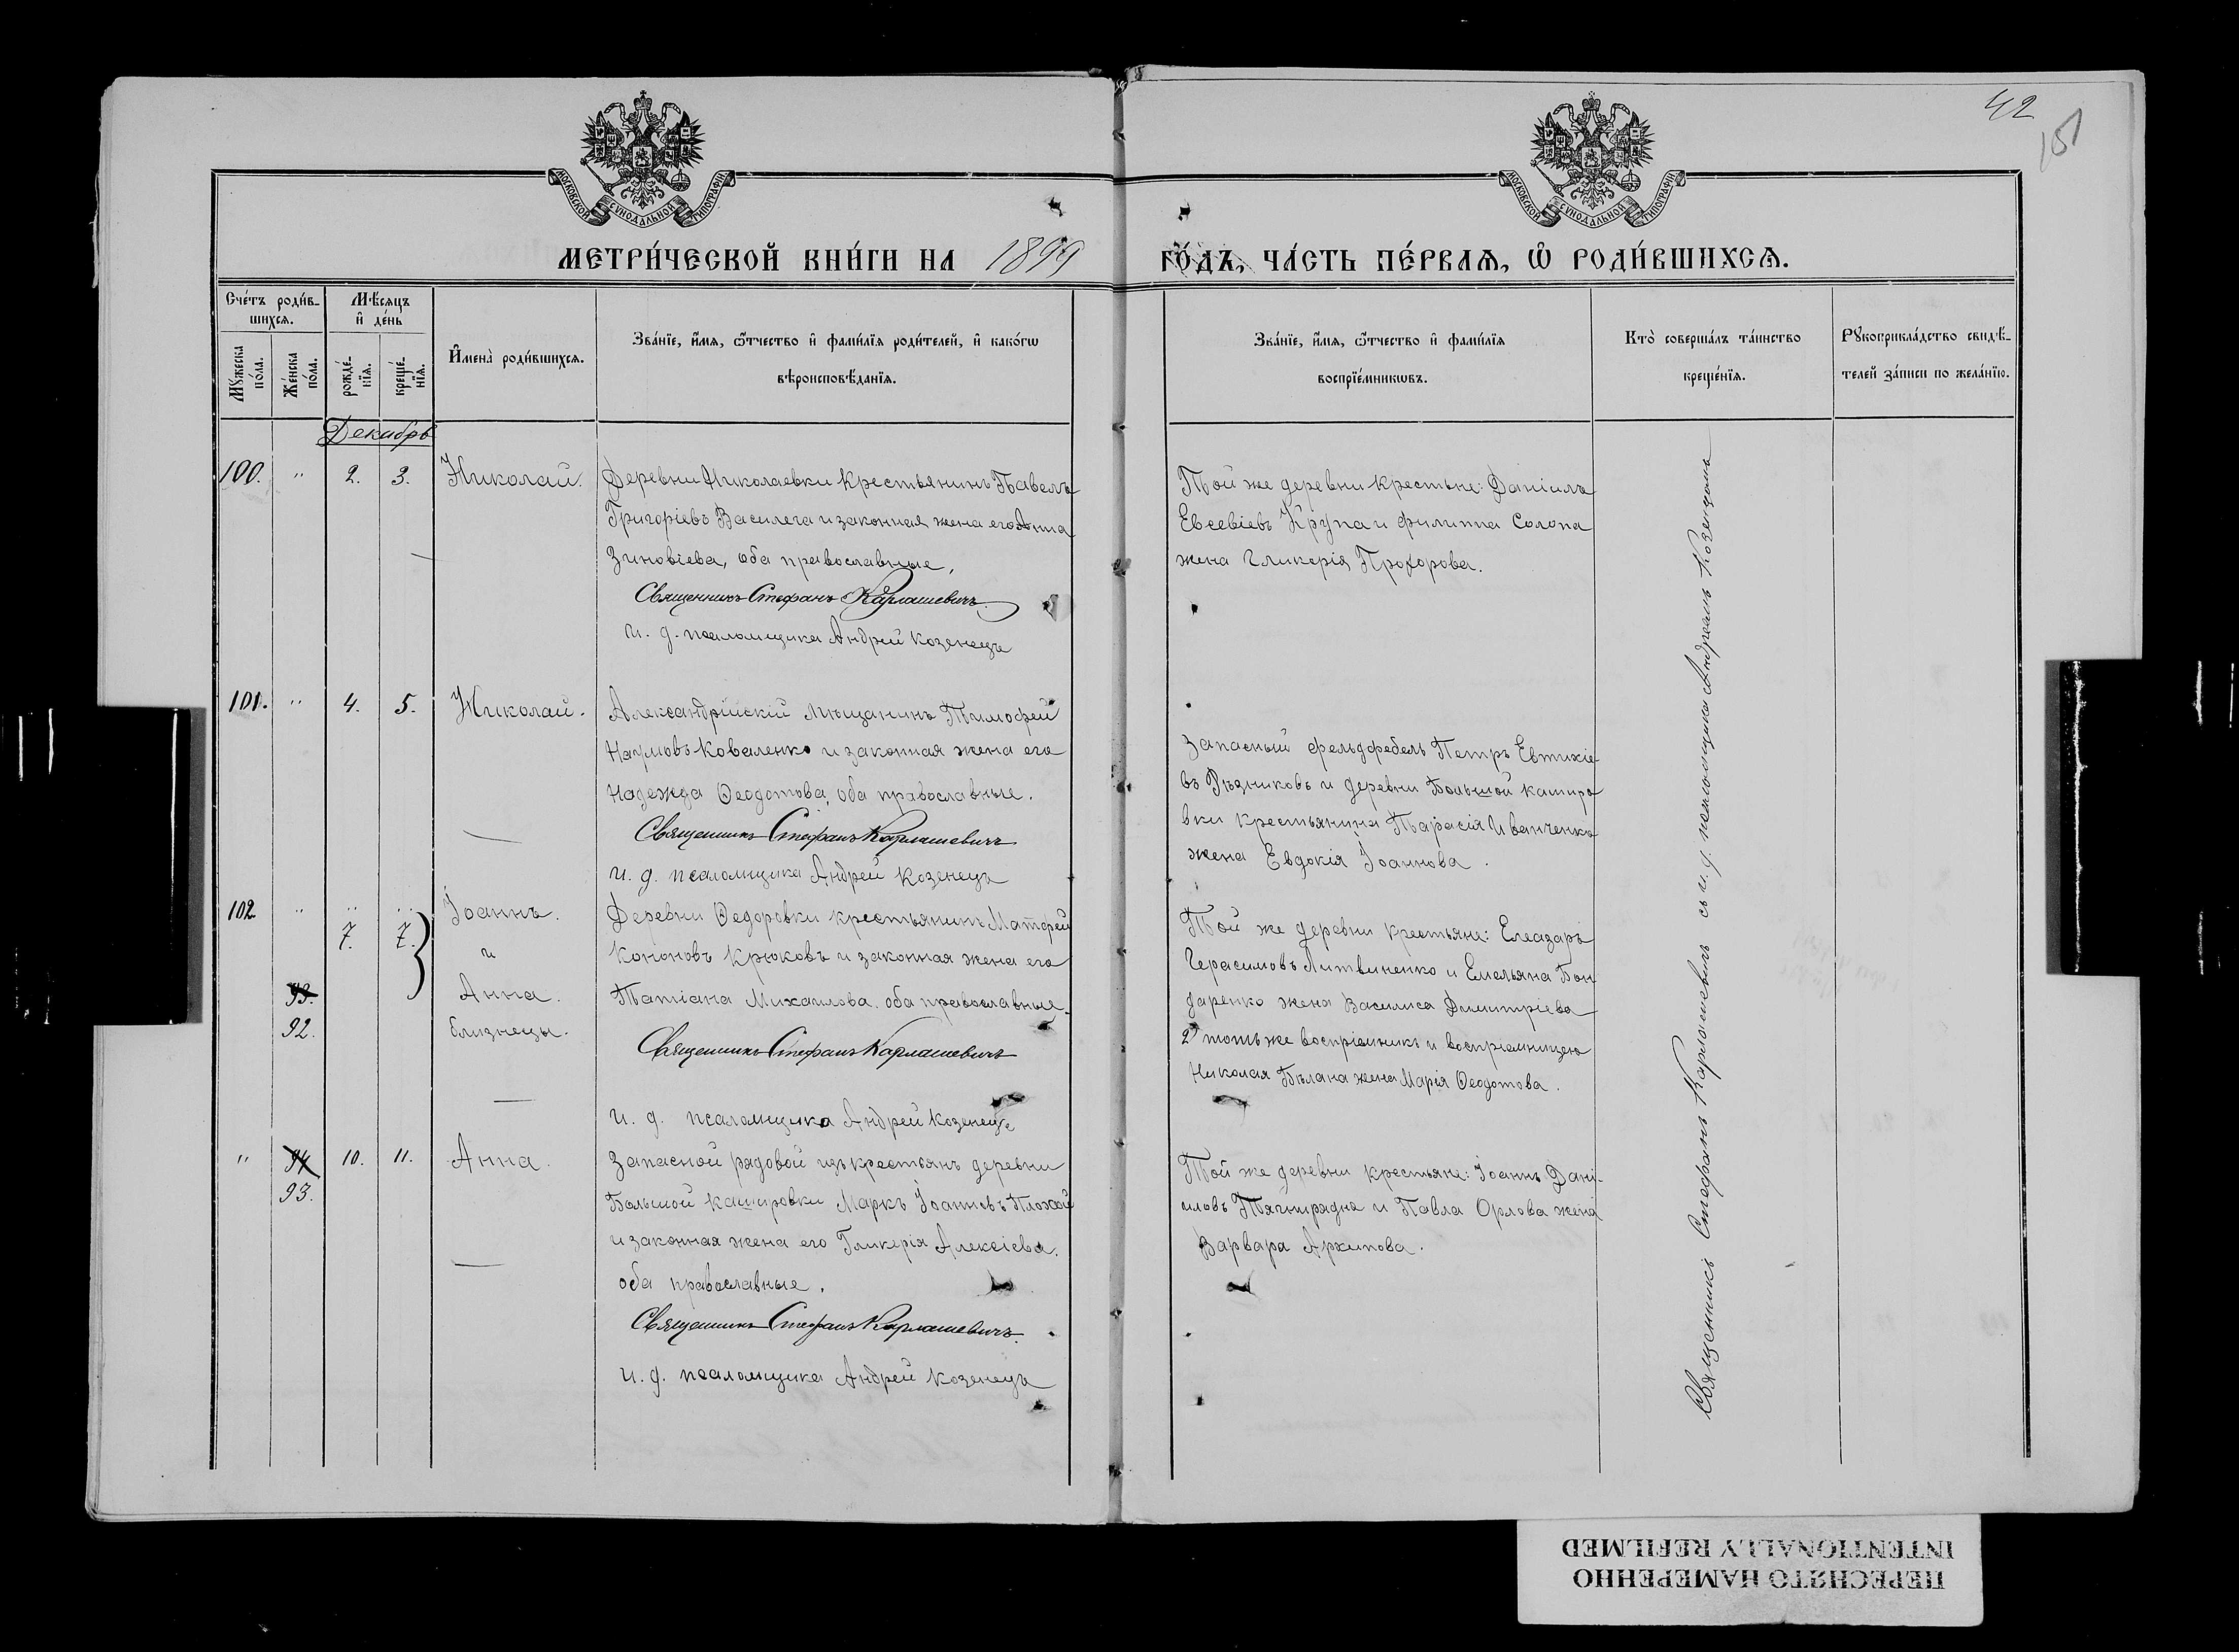 42
151
МОСКОВСКОЙ СѴНОДАЛЬНОЙ ТИПОГРАФІИ
МОСКОВСКОЙ СѴНОДАЛЬНОЙ ТИПОГРАФІИ
МЕТРИ́ЧЕСКОЙ КНИ́ГИ НА 1899 ГО́ДЪ, ЧА́СТЬ ПЕ́РВАѦ, Ѽ РОДИ́ВШИХСѦ.
Сче́тъ роди́в-
шихсѧ.
Мѣ́сѧцъ
и҆ де́нь
Мꙋ́жеска
по́ла.
Же́нска
по́ла.
рожде́-
нїѧ.
креще́-
нїѧ.
И҆мена̀ роди́вшихсѧ.
Зва́нїе, и҆́мѧ, ѻ҆́тчество и҆ фами́лїѧ роди́телей, и҆ како́гѡ
вѣроисповѣ́данїѧ.
Зва́нїе, и҆́мѧ, ѻ҆́тчество и҆ фами́лїѧ
воспрїе́мникѡвъ.
Кто̀ соверша́лъ та́инство
креще́нїѧ.
Рꙋкоприкла́дство свидѣ́-
телей за́писи по жела́нїю.
Декабрь
100. " 2. 3. Николай.
Деревни Николаевки крестьянинъ Павелъ
Григоріевъ Василега и законная жена его Анна
Зиновіева, оба православные,
Священникъ Стефанъ Карлашевичъ
и. д. псаломщика Андрей Козенецъ
Той же деревни крестьне: Даніилъ
Евсевіевъ Крупа и Филиппа Солопа
жена Гликерія Прохорова.
101. " 4. 5. Николай.
Александрійскій мѣщанинъ Тимофей
Наумовъ Коваленко и законная жена его
Надежда Ѳеодотова, оба православные.
Священникъ Стефанъ Карлашевичъ
и. д. псаломщика Андрей Козенецъ
Запасный фельдфебель Петръ Евтихіе-
въ Рѣзниковъ и деревни Большой Каширо-
вки крестьянина Тарасія Иванченко
жена Евдокія Іоаннова.
102 " 7. 7. Іоаннъ.
и
93. Анна.
92. близнецы.
Деревни Ѳедоровки крестьянинъ Матфей
Кононовъ Крюковъ и законная жена его
Татіана Михаилова. оба православные.
Священникъ Стефанъ Карлашевичъ
и. д. псаломщика Андрей Козенецъ
Той же деревни крестьяне: Елеазаръ
Герасимовъ Литвиненко и Емельяна Бон
даренко жена Василиса Димитріева
2) тотъ же воспріемникъ и воспріемницею
Николая Бѣлана жена Марія Ѳеодотова.
" 94 10. 11. Анна.
93.
Запасной рядовой изъ крестьянъ деревни
Большой Кашировки Маркъ Іоанновъ Плохой
и законная жена его Гликерія Алексіева.
оба православные.
Священникъ Стефанъ Карлашевичъ.
и. д. псаломщика Андрей Козенецъ
Той же деревни крестьяне: Іоаннъ Дані-
иловъ и Павла Орлова жена
Варвара Архипова.
Священникъ Стефанъ Карлашевичъ съ и. д. псаломщика Андреемъ Козенцомъ
ПЕРЕСНЯТО НАМЕРЕННО
INTENTIONALLY REFILMED